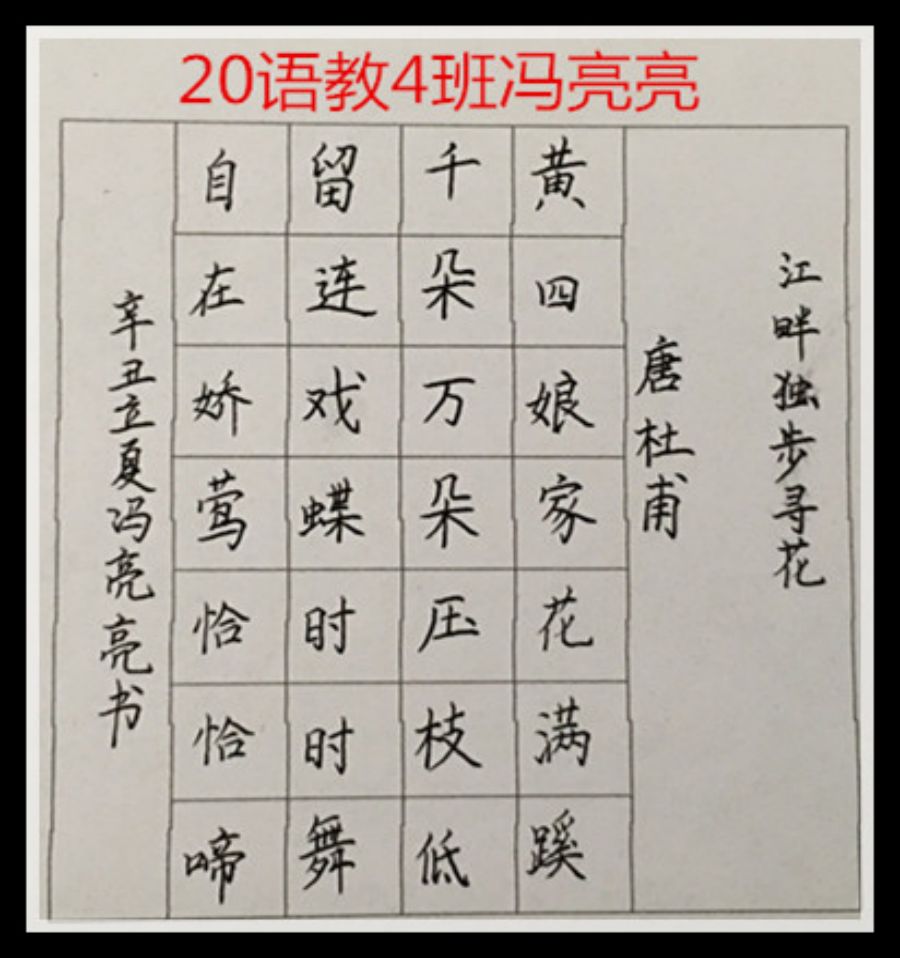 20语教4班冯亮亮
江畔独步寻花
唐杜甫
黄四娘家花满蹊
千朵万朵压枝低
留连戏蝶时时舞
自在娇莺恰恰啼
辛丑立夏冯亮亮书